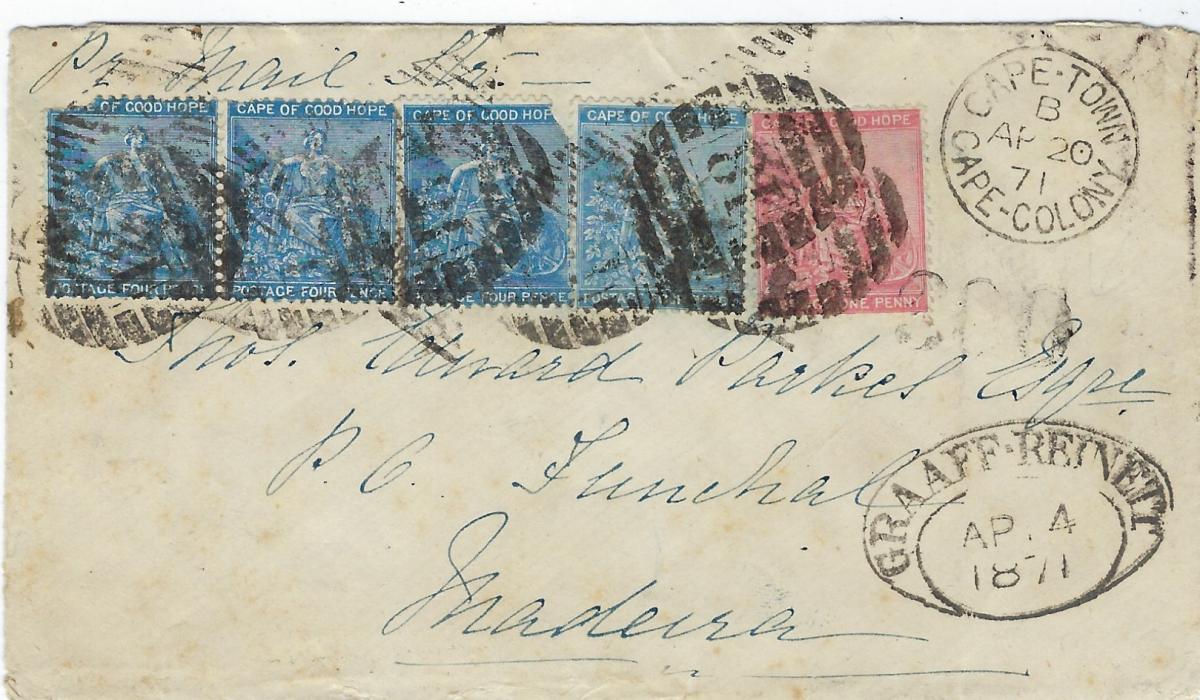 Pr Mail Str.
CAPE OF GOOD HOPE
POSTAGE FOUR PENCE
CAPE OF GOOD HOPE
POSTAGE FOUR PENCE
CAPE OF GOOD HOPE
POSTAGE FOUR PENCE
CAPE OF GOOD HOPE
POSTAGE FOUR PENCE
OF GOOD HOPE
ONE PENNY
CAPE-TOWN
B
AP 20
71
CAPE-COLONY.
Thos. Edward Parkes Esqre
P.O. Funchal
Madeira
GRAAFF-REINETT
AP. 4
1871